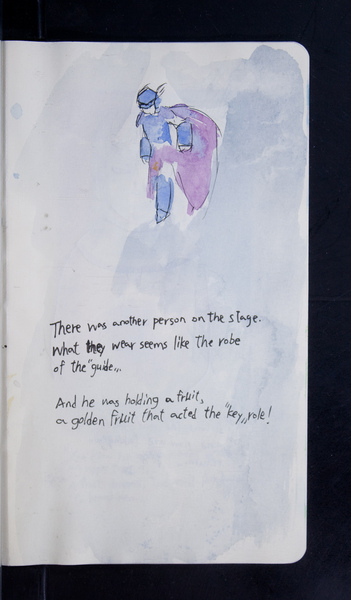 There was another person on the stage.
What they wear seems like the robe
of the "guide„.
And he was holding a fruit,
a golden fruit that acted the "key„ role!